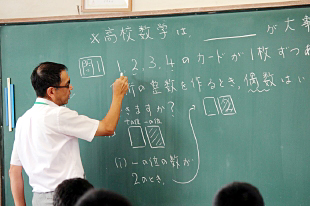 ※高校数学は、＿＿＿＿が大事
問1 1,2,3,4のカードが1枚ずつあ
の整数を作るとき,偶数はい
きますか?
十の位 一の位
2
(i) 一の位の数が
2のとき,